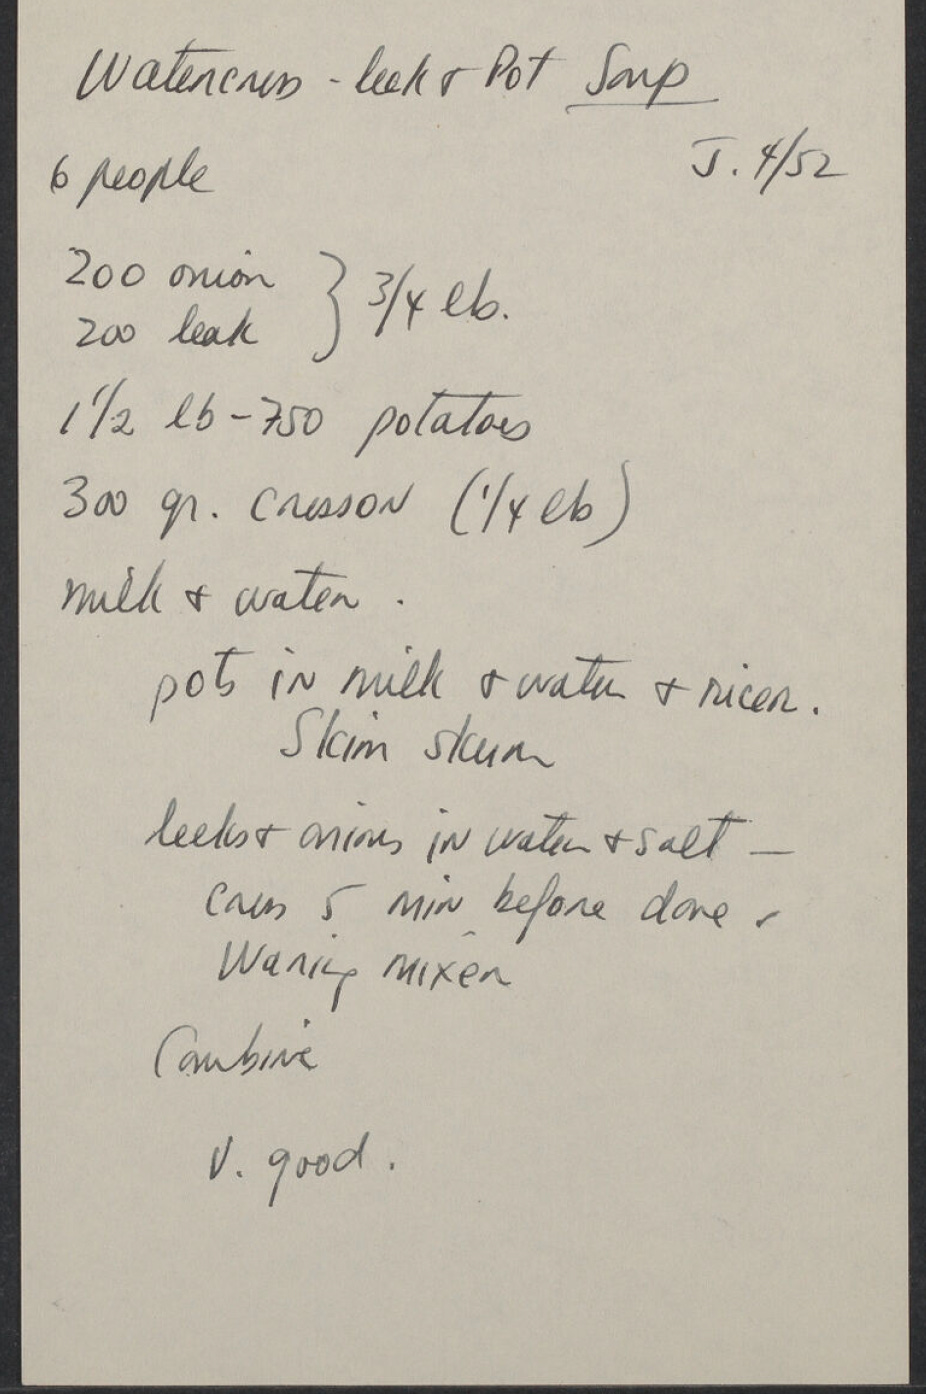 Watercress - leek & Pot Soup
J. 4/52
6 people
200 onion } 3/4 lb.
200 leak
1 1/2 lb - 750 potatoes
300 gr. cresson (1/4 lb)
milk & water.
pots in milk & water & ricer.
Skim skum
leeks & onions in water & salt —
cress 5 min before done &
Waring mixer
Combine
V. good.